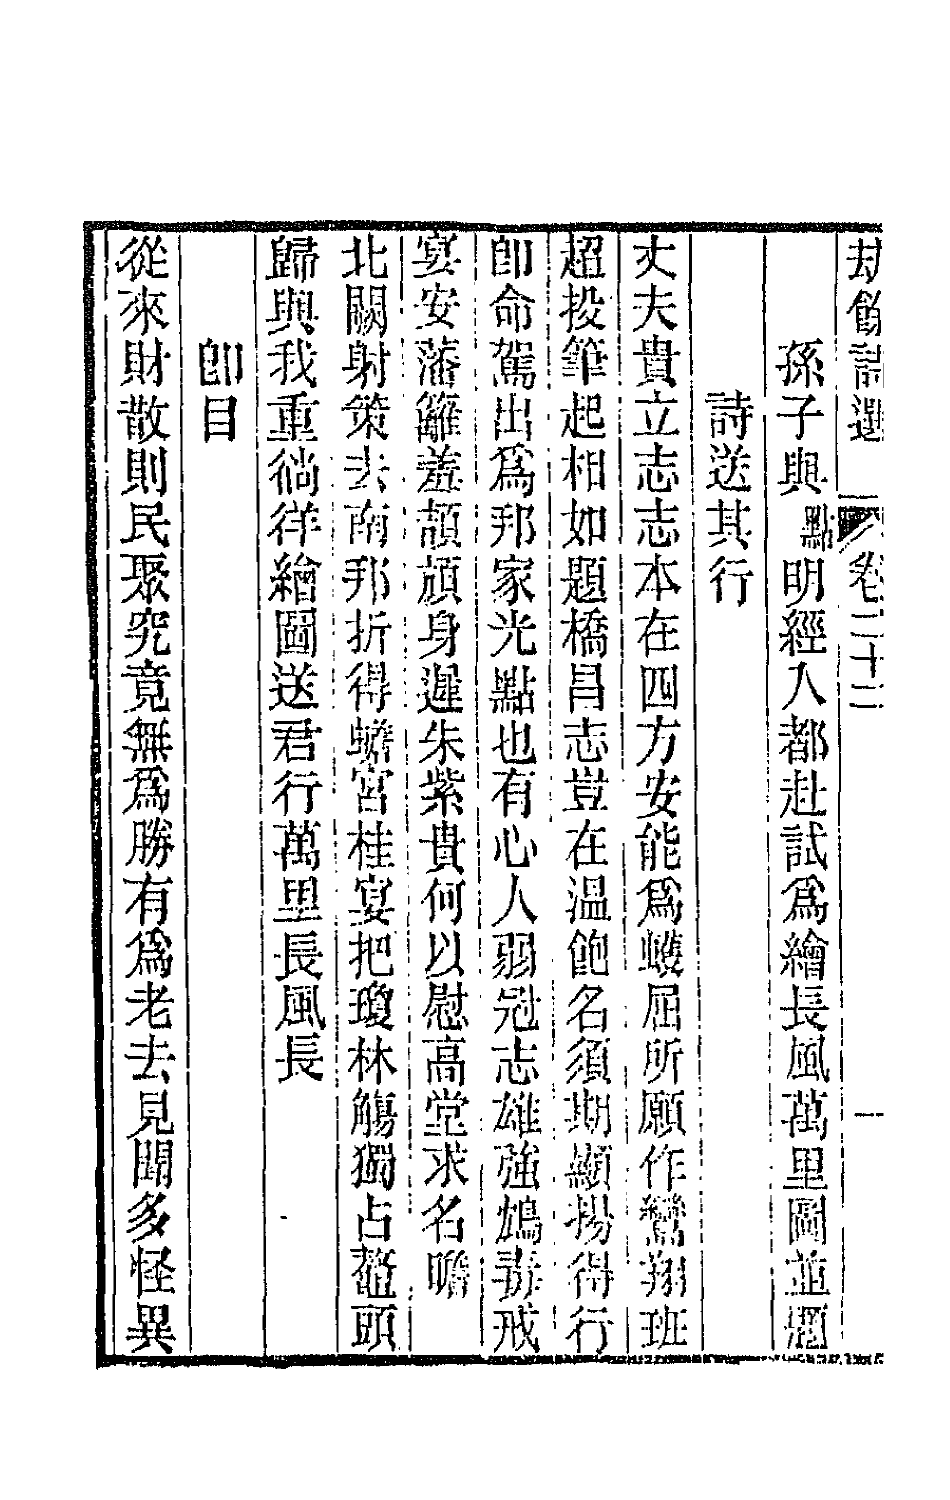 劫餘詩選 卷二十二 一
孫子與點明經入都赴試爲繪長風萬里圖並題
詩送其行
丈夫貴立志志本在四方安能爲蠖屈所願作鸞翔班
超投筆起相如題橋昌志豈在溫飽名須期顯揚得行
卽命駕出爲邦家光點也有心人弱冠志雄強鴆毒戒
宴安藩籬羞頡頏身遲朱紫貴何以慰高堂求名瞻
北闕射策去南邦折得蟾宮桂宴把瓊林觴獨占鼇頭
歸與我重徜徉繪圖送君行萬里長風長
卽目
從來財散則民聚究竟無爲勝有爲老去見聞多怪異